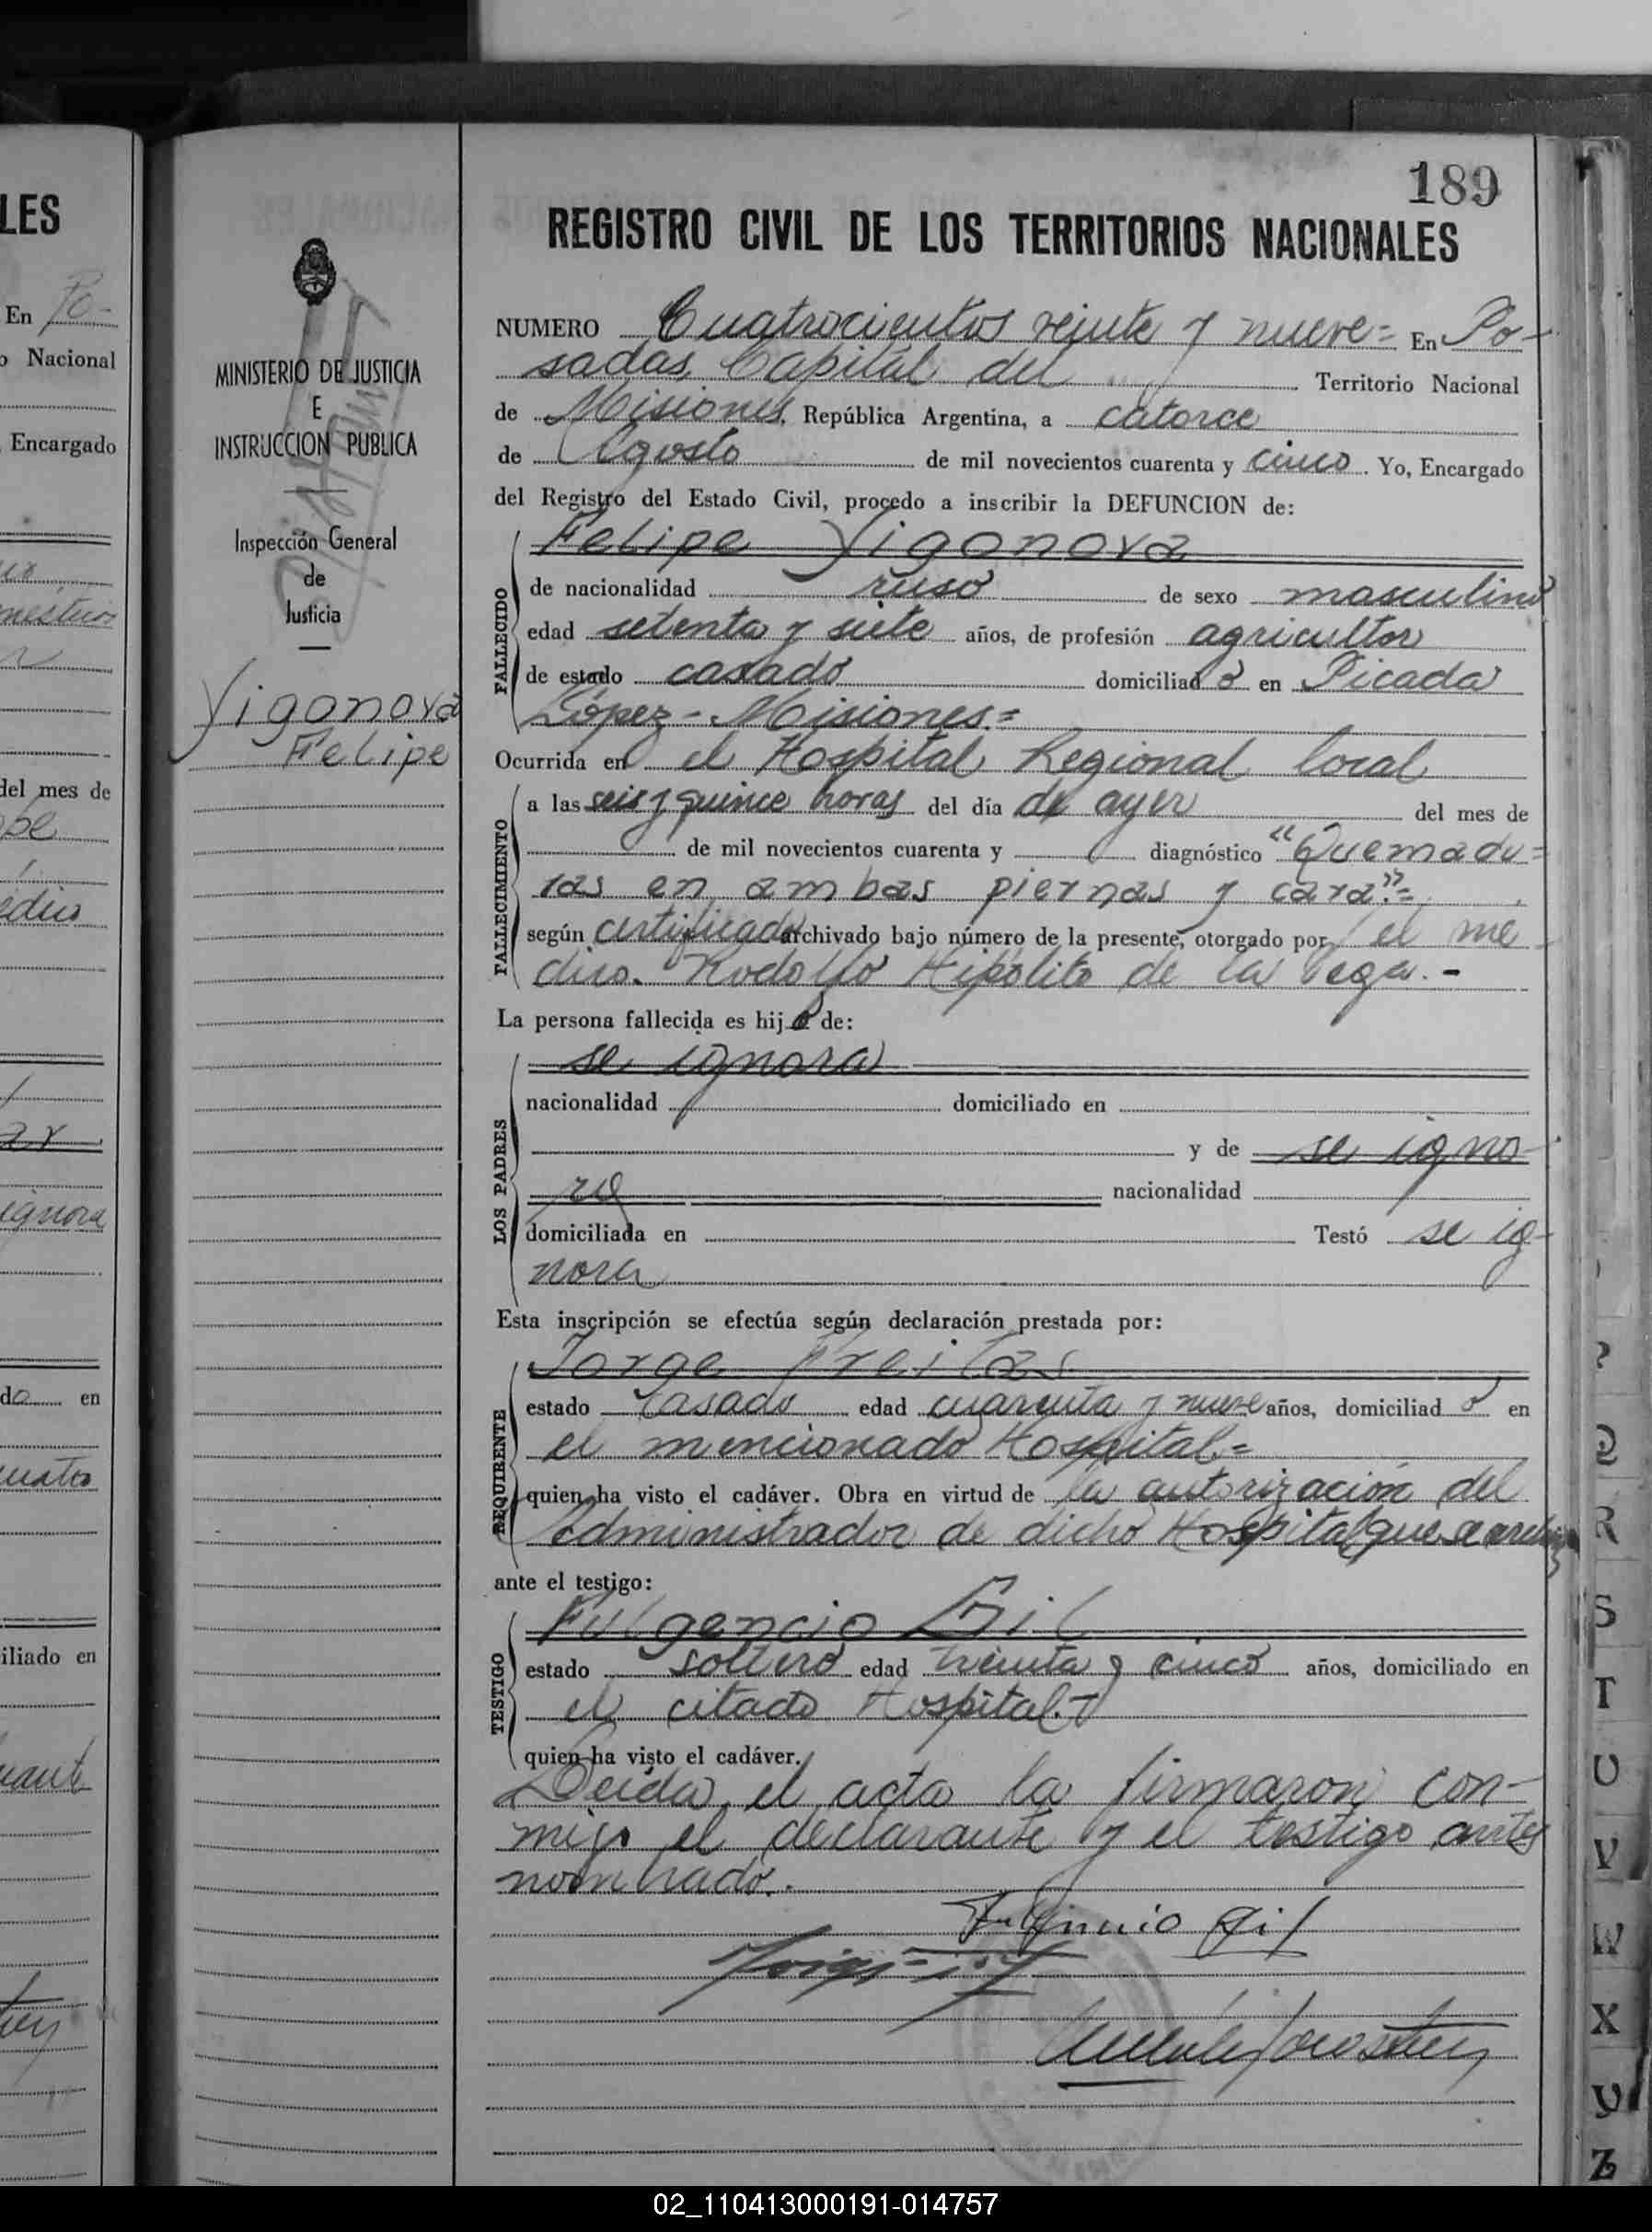 189
REGISTRO CIVIL DE LOS TERRITORIOS NACIONALES
MINISTERIO DE JUSTICIA
E
INSTRUCCION PUBLICA
Inspección General
de
Justicia
Yigonova
Felipe
NUMERO Cuatrocientos veinte y nueve = En Po-
sadas, Capital del Territorio Nacional
de Misiones, República Argentina, a catorce
de Agosto de mil novecientos cuarenta y cinco. Yo, Encargado
del Registro del Estado Civil, procedo a inscribir la DEFUNCION de:
Felipe Yigonova
FALLECIDO
de nacionalidad ruso de sexo masculino
edad setenta y siete años, de profesión agricultor
de estado casado domiciliado en Picada
López - Misiones. =
Ocurrida en el Hospital Regional local
FALLECIMIENTO
a las seis y quince horas del día de ayer del mes de
de mil novecientos cuarenta y diagnóstico "Quemadu=
ras en ambas piernas y cara". =
según certificado archivado bajo número de la presente, otorgado por el me-
dico. Rodolfo Hipólito de la Vega. -
La persona fallecida es hijo de:
LOS PADRES
se ignora
nacionalidad domiciliado en
y de se igno-
ra nacionalidad
domiciliada en Testó se ig-
nora
Esta inscripción se efectúa según declaración prestada por:
REQUIRENTE
Jorge Freitas
estado casado edad cuarenta y nueve años, domiciliado en
el mencionado Hospital. =
quien ha visto el cadáver. Obra en virtud de la autorización del
Administrador de dicho Hospital que se archiva
ante el testigo:
TESTIGO
Fulgencio Gil
estado soltero edad treinta y cinco años, domiciliado en
el citado Hospital. -
quien ha visto el cadáver.
Leída el acta la firmaron con-
migo el declarante y el testigo antes
nombrado. -
Fulgencio Gil
LES
En Po-
o Nacional
Encargado
del mes de
ignora
do en
iliado en
Q
R
S
T
U
V
W
X
Y
Z
02_110413000191-014757